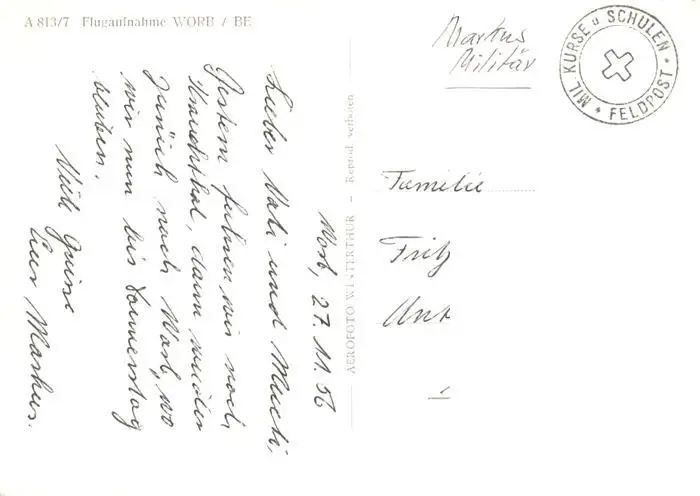 A 813/7 Flugaufnahme WORB / BE
Markus
Militär
MIL. KURSE u SCHULEN * FELDPOST *
Worb, 27.11.56
Lieber Vati und Mutti,
Gestern fuhren wir noch
, dann wieder
zurück nach Worb, wo
wir nun bis Donnerstag
bleiben.
Viele Grüsse
Euer Markus.
AEROFOTO WINTERTHUR — Reprod. verboten
Familie
Fritz